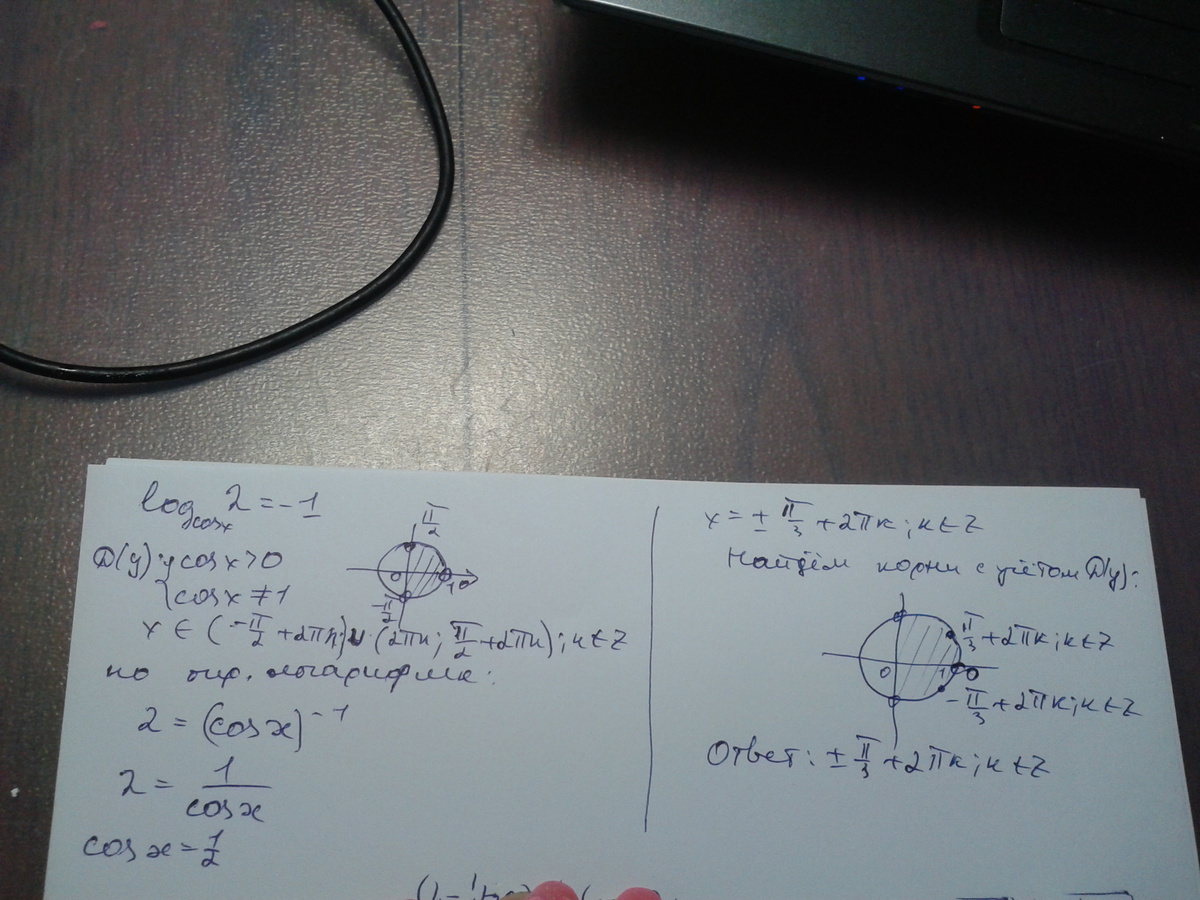 log_cosx 2 = -1
D(y): { cos x > 0
{ cos x ≠ 1
π/2
0 1 0
-π/2
x ∈ (-π/2 + 2πk) ∪ (2πk; π/2 + 2πk); k ∈ Z
по опр. логарифма:
2 = (cos x)^-1
2 = 1/cos x
cos x = 1/2
x = ± π/3 + 2πk; k ∈ Z
Найдём корни с учётом D(y):
π/3 + 2πk; k ∈ Z
0 1 0
-π/3 + 2πk; k ∈ Z
Ответ: ± π/3 + 2πk; k ∈ Z